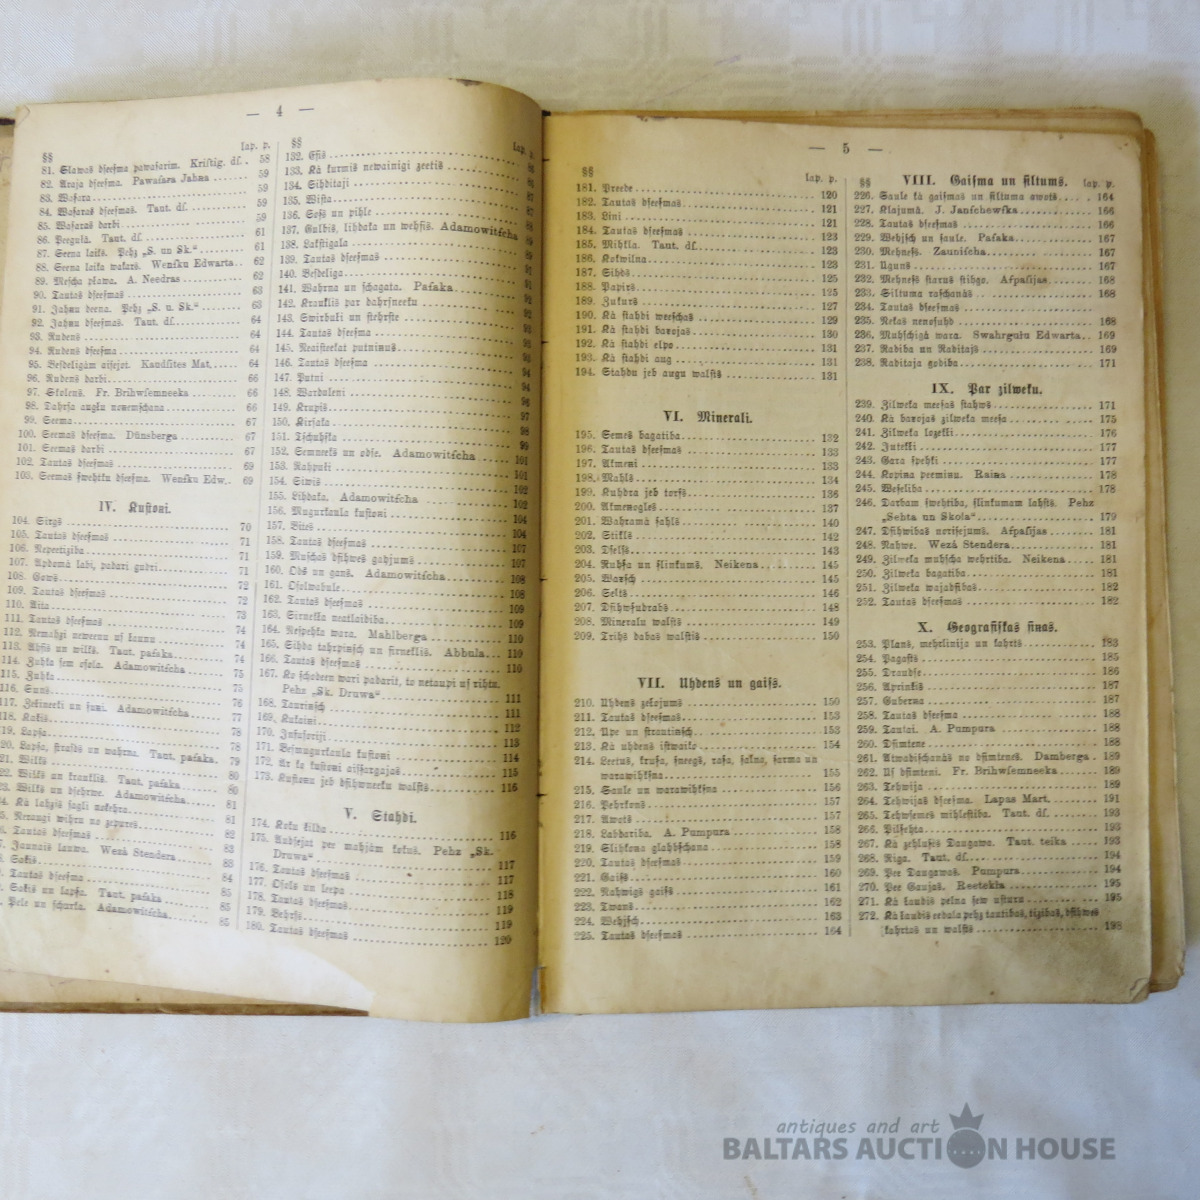 — 4 —
§§ lap. p.
81. Slawas dſeeſma pawaſarim. Kriſtig. dſ. . 58
82. Araja dſeeſma. Pawaſara Jahna 59
83. Waſara 59
84. Waſaras dſeeſmas. Taut. dſ. 59
85. Waſaras darbi 59
86. Pergulà. Taut. dſ. 61
87. Seena laiks. Pehz „S. un Sk.“ 61
88. Seena laika wakars. Wenſku Edwarta 62
89. Meſcha plawa. A. Needras 62
90. Tautas dſeeſmas 63
91. Jahnu deena. Pehz „S. u. Sk.“ 63
92. Jahnu dſeeſmas. Taut. dſ. 64
93. Rudens 64
94. Rudens dſeeſma 64
95. Beſdeligàm aiſejot. Kaudſites Mat. 64
96. Rudens darbi 66
97. Stolens. Fr. Brihwſemneeka 66
98. Dahrſa augļu noņemſchana 66
99. Seema 67
100. Seemas dſeeſma. Dünsberga 67
101. Seemas darbi 67
102. Tautas dſeeſmas 69
103. Seemas ſwehtku dſeeſma. Wenſku Edw. 69
IV. Kuſtoņi.
104. Sirgs 70
105. Tautas dſeeſmas 71
106. Nepertigiba 71
107. Apdomā labi, padari gudri 71
108. Gows 72
109. Tautas dſeeſmas 72
110. Aita 73
111. Tautas dſeeſmas 74
112. Nemahzi neweenu uſ ļaunu 74
113. Ahſis un wilks. Taut. paſaka 74
114. Zuhka ſem oſola. Adamowitſcha 75
115. Zuhka 75
116. Suns 76
117. Zekineeki un ſuņi. Adamowitſcha 77
118. Kaķis 78
119. Lapſa 78
120. Lapſa, ſtrulds un wahrna. Taut. paſaka. 79
121. Wilks 80
122. Wilks un kraukļis. Taut. paſaka 80
123. Wilks un dſehrwe. Adamowitſcha 81
124. Kà lahzis ſagli noķehra 81
125. Neraugi wihru no zepures 82
126. Tautas dſeeſmas 83
127. Jaunais ſauwa. Wezà Stendera 83
128. Sakis 84
129. Tautas dſeeſma 85
130. Sakis un lapſa. Taut. paſaka 85
131. Pele un ſchurka. Adamowitſcha 85
§§ lap. p.
132. Eſis
133. Kà kurmis newainigi zeetis
134. Sihditaji
135. Wiſta
136. Soſs un pihle
137. Gulbis, lihdaka un wehſis. Adamowitſcha
138. Lakſtigala
139. Tautas dſeeſmas
140. Beſdeliga
141. Wahrna un ſchagata. Paſaka
142. Kraukļis par dahrſneeku
143. Swirbuļi un ſtehrſte
144. Tautas dſeeſma
145. Neaiſteekat putniņus
146. Tautas dſeeſma 94
147. Putni 94
148. Wardulēni 96
149. Krupis 97
150. Ķirſaka 98
151. Tſchuhſka 99
152. Semneeks un odſe. Adamowitſcha 101
153. Rahpuļi 101
154. Siwis 102
155. Lihdaka. Adamowitſcha 102
156. Mugurkaula kuſtoņi 104
157. Bites 104
158. Tautas dſeeſmas 107
159. Muſchas dſihwes gahjums 107
160. Ods un gans. Adamowitſcha 108
161. Oſolwabule 108
162. Tautas dſeeſmas 109
163. Sirnekļa neatlaidiba 109
164. Neſpehka wara. Mahlberga 110
165. Sihda tahrpiņſch un ſirneklis. Abbula 110
166. Tautas dſeeſmas 110
167. Ko ſchodeen wari padarit, to netaupi uſ rihtu.
Pehz „Sk. Druwa“ 111
168. Tauriņſch 111
169. Kukaiņi 112
170. Inſuſoriji 113
171. Beſmugurkaula kuſtoņi 114
172. Ar ko kuſtoņi aiſſargajas 115
173. Kuſtoņu jeb dſihwneeku walſts 116
V. Stahdi.
174. Koku ſilda 116
175. Audſejot per mahjām kokus. Pehz „Sk.
Druwa“ 117
176. Tautas dſeeſmas 117
177. Oſols un leepa 118
178. Tautas dſeeſmas 119
179. Behrſs 119
180. Tautas dſeeſmas 120
— 5 —
§§ lap. p.
181. Preede 120
182. Tautas dſeeſmas 121
183. Lini 121
184. Tautas dſeeſmas 123
185. Mihkla. Taut. dſ. 123
186. Kokwilna 123
187. Sihds 125
188. Papirs 125
189. Zukurs 127
190. Kà ſtahdi weeſchas 129
191. Kà ſtahdi barojas 130
192. Kà ſtahdi elpo 131
193. Kà ſtahdi aug 131
194. Stahdu jeb augu walſts 131
VI. Minerali.
195. Semes bagatiba 132
196. Tautas dſeeſmas 133
197. Akmeņi 133
198. Mahls 134
199. Kuhdra jeb torfs 136
200. Akmeņogles 137
201. Wahramà ſahls 140
202. Stikls 142
203. Dſelſs 143
204. Ruhſa un ſlinkums. Neikena 145
205. Warſch 145
206. Selts 146
207. Dſihwſudrabs 148
208. Mineralu walſts 149
209. Trihs dabas walſtis 150
VII. Uhdens un gaiſs.
210. Uhdens zeļojums 150
211. Tautas dſeeſmas 153
212. Upe un ſtrautiņſch 153
213. Kà uhdens iſtwaiko 154
214. Leetus, kruſa, ſneegs, raſa, ſalna, ſarma un
warawihkſna 155
215. Saule un warawihkſna 156
216. Pehrkons 157
217. Awots 157
218. Labdariba. A. Pumpura 158
219. Slihkoņa glahbſchana 158
220. Tautas dſeeſmas 159
221. Gaiſs 160
222. Nahwigs gaiſs 161
223. Twans 162
224. Wehjſch 163
225. Tautas dſeeſmas 164
VIII. Gaiſma un ſiltums.
§§ lap. p.
226. Saule kà gaiſmas un ſiltuma awots 164
227. Klajumà. J. Janſchewſka 166
228. Tautas dſeeſmas 166
229. Wehjſch un ſaule. Paſaka 167
230. Mehneſs. Zauniſcha 167
231. Uguns 167
232. Mehneſs ſtarus ſtihgo. Aſpaſijas 168
233. Siltuma raſchanàs 168
234. Tautas dſeeſmas
235. Nekas nenoſuhd 168
236. Muhſchigà wara. Swahrguļu Edwarta 169
237. Radiba un Raditajs 169
238. Raditaja godiba 171
IX. Par zilweku.
239. Zilweka meeſas ſtahws 171
240. Kà barojas zilweka meeſa 175
241. Zilweka lozekļi 176
242. Jutekļi 177
243. Gara ſpehki 177
244. Kopiņa peemiņu. Raiņa 178
245. Weſeliba 178
246. Darbam ſwehtiba, ſlinkumam lahſts. Pehz
„Sehta un Skola“ 179
247. Dſihwibas noriſejums. Aſpaſijas 181
248. Nahwe. Wezà Stendera 181
249. Zilweka muhſcha wehrtiba. Neikena 181
250. Zilweka bagatiba 181
251. Zilweka wajadſibas 182
252. Tautas dſeeſmas 182
X. Geografiſkas ſiņas.
253. Plans, mehrlinija un ſahrts 183
254. Pagaſts 185
255. Draudſe 186
256. Apriņķis 187
257. Guberņa 187
258. Tautas dſeeſma 188
259. Tautai. A. Pumpura 188
260. Dſimtene 188
261. Atwadiſchanàs no dſimtenes. Damberga 189
262. Uſ dſimteni. Fr. Brihwſemneeka 189
263. Tehwija 189
264. Tehwijas dſeeſma. Lapas Mart. 191
265. Tehwſemes mihleſtiba. Taut. dſ. 193
266. Pilſehta 193
267. Kà zehluſes Daugawa. Taut. teika 193
268. Riga. Taut. dſ. 194
269. Pee Daugawas. Pumpura 194
270. Pee Gaujas. Reetekļa 195
271. Kà ļaudis pelna ſew uſturu 195
272. Kà ļaudis eedala pehz tautibas, tizibas, dſihwes
kahrtas un walſts 198
antiques and art
BALTARS AUCTION HOUSE